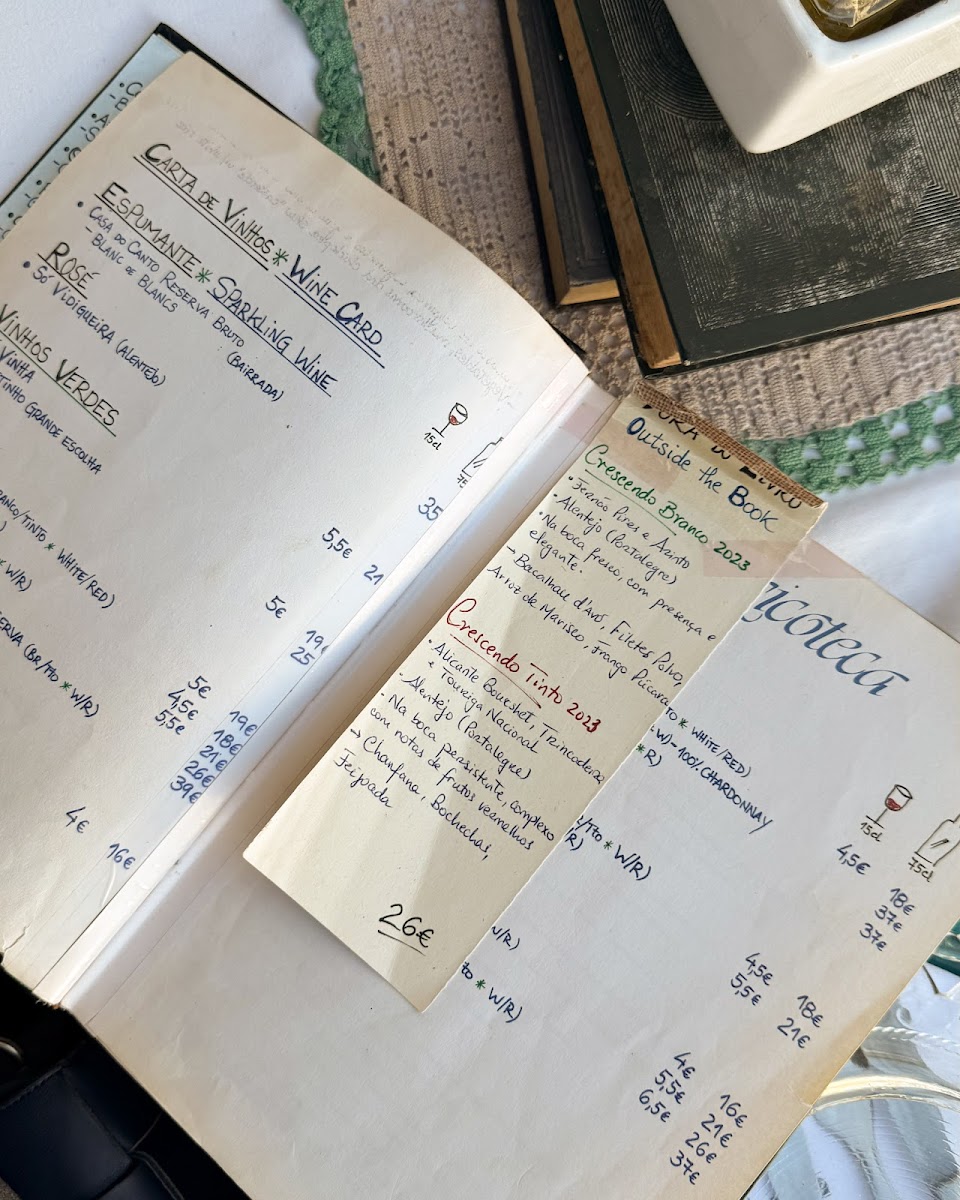 CARTA DE VINHOS * WINE CARD
ESPUMANTE * SPARKLING WINE
• CASA DO CANTO RESERVA BRUTO (BAIRRADA)
- BLANC DE BLANCS
ROSÉ
• SÓ VIDIGUEIRA (ALENTEJO)
VINHOS VERDES
VINHA
GRANDE ESCOLHA
/TINTO * WHITE/RED)
W/R)
(BR/TTO * W/R)
15cl
35
5,5€ 21
5€ 19€
25
5€ 19€
4,5€ 18€
5,5€ 21€
26€
39€
4€ 16€
Outside the Book
Crescendo Branco 2023
• Fernão Pires e Arinto
• Alentejo (Portalegre)
• Na boca fresco, com presença e
elegante.
→ Bacalhau d'Avó, Filetes Polvo,
Arroz de Marisco, Frango Púcara
Crescendo Tinto 2023
• Alicante Boueshet, Trincadeira
e Touriga Nacional
• Alentejo (Portalegre)
• Na boca persistente, complexo
com notas de frutos vermelhos
→ Chanfana, Bochechas,
Feijoada
26€
icoteca
TO * WHITE/RED)
W) - 100% CHARDONNAY
* R)
/TTO * W/R)
R)
W/R)
to * W/R)
15cl 75cl
4,5€ 18€
37€
37€
4,5€ 18€
5,5€ 21€
4€ 16€
5,5€ 21€
6,5€ 26€
37€